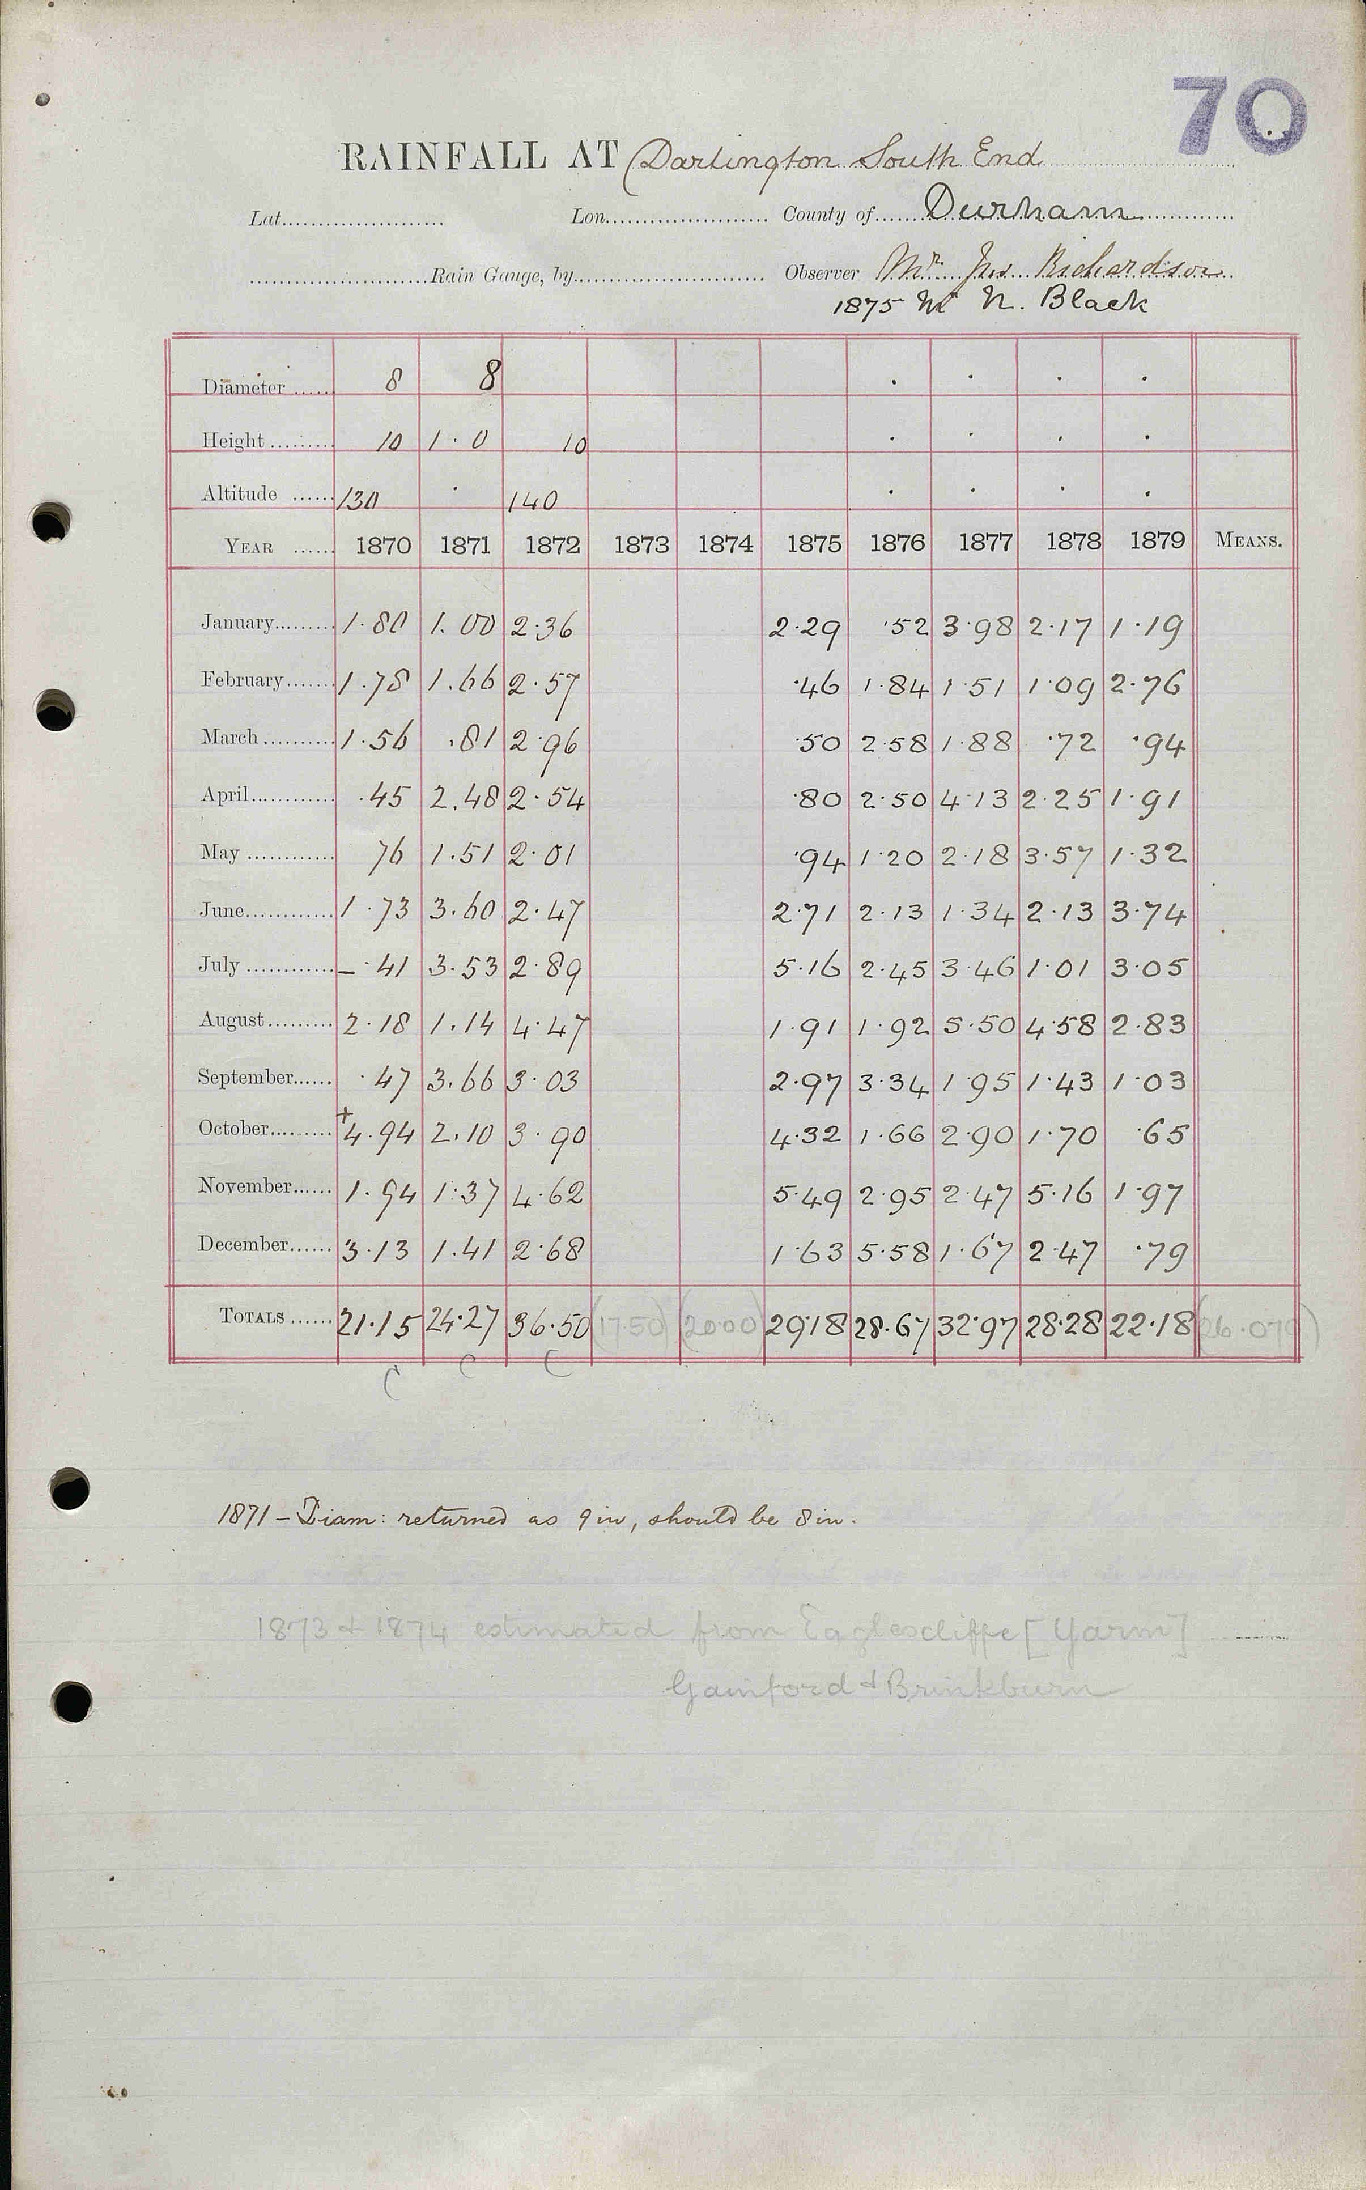 70
RAINFALL AT Darlington South End
Lat. Lon. County of Durham
Rain Gauge, by Observer Mr Jas Richardson
1875 Mr N. Black
Diameter 8 8
Height 10 1·0 10
Altitude 130 · 140
YEAR 1870 1871 1872 1873 1874 1875 1876 1877 1878 1879 MEANS.
January 1·80 1.00 2·36 2·29 ·52 3·98 2·17 1·19
February 1·78 1.66 2·57 ·46 1·84 1·51 1·09 2·76
March 1·56 .81 2·96 ·50 2·58 1·88 ·72 ·94
April ·45 2.48 2·54 ·80 2·50 4·13 2·25 1·91
May 76 1.51 2·01 ·94 1·20 2·18 3·57 1·32
June 1·73 3.60 2·47 2·71 2·13 1·34 2·13 3·74
July – ·41 3·53 2·89 5·16 2·45 3·46 1·01 3·05
August 2·18 1.14 4·47 1·91 1·92 5·50 4·58 2·83
September ·47 3.66 3·03 2·97 3·34 1·95 1·43 1·03
October +4.94 2.10 3·90 4·32 1·66 2·90 1·70 ·65
November 1·94 1·37 4·62 5·49 2·95 2·47 5·16 1·97
December 3·13 1.41 2·68 1·63 5·58 1·67 2·47 ·79
TOTALS 21·15 24·27 36·50 (17·50) (20·00) 29·18 28·67 32·97 28·28 22·18 (26·070)
C C C
1871 – Diam: returned as 9 in, should be 8 in.
1873 & 1874 estimated from Eaglescliffe [Yarm]
Gainford & Brinkburn